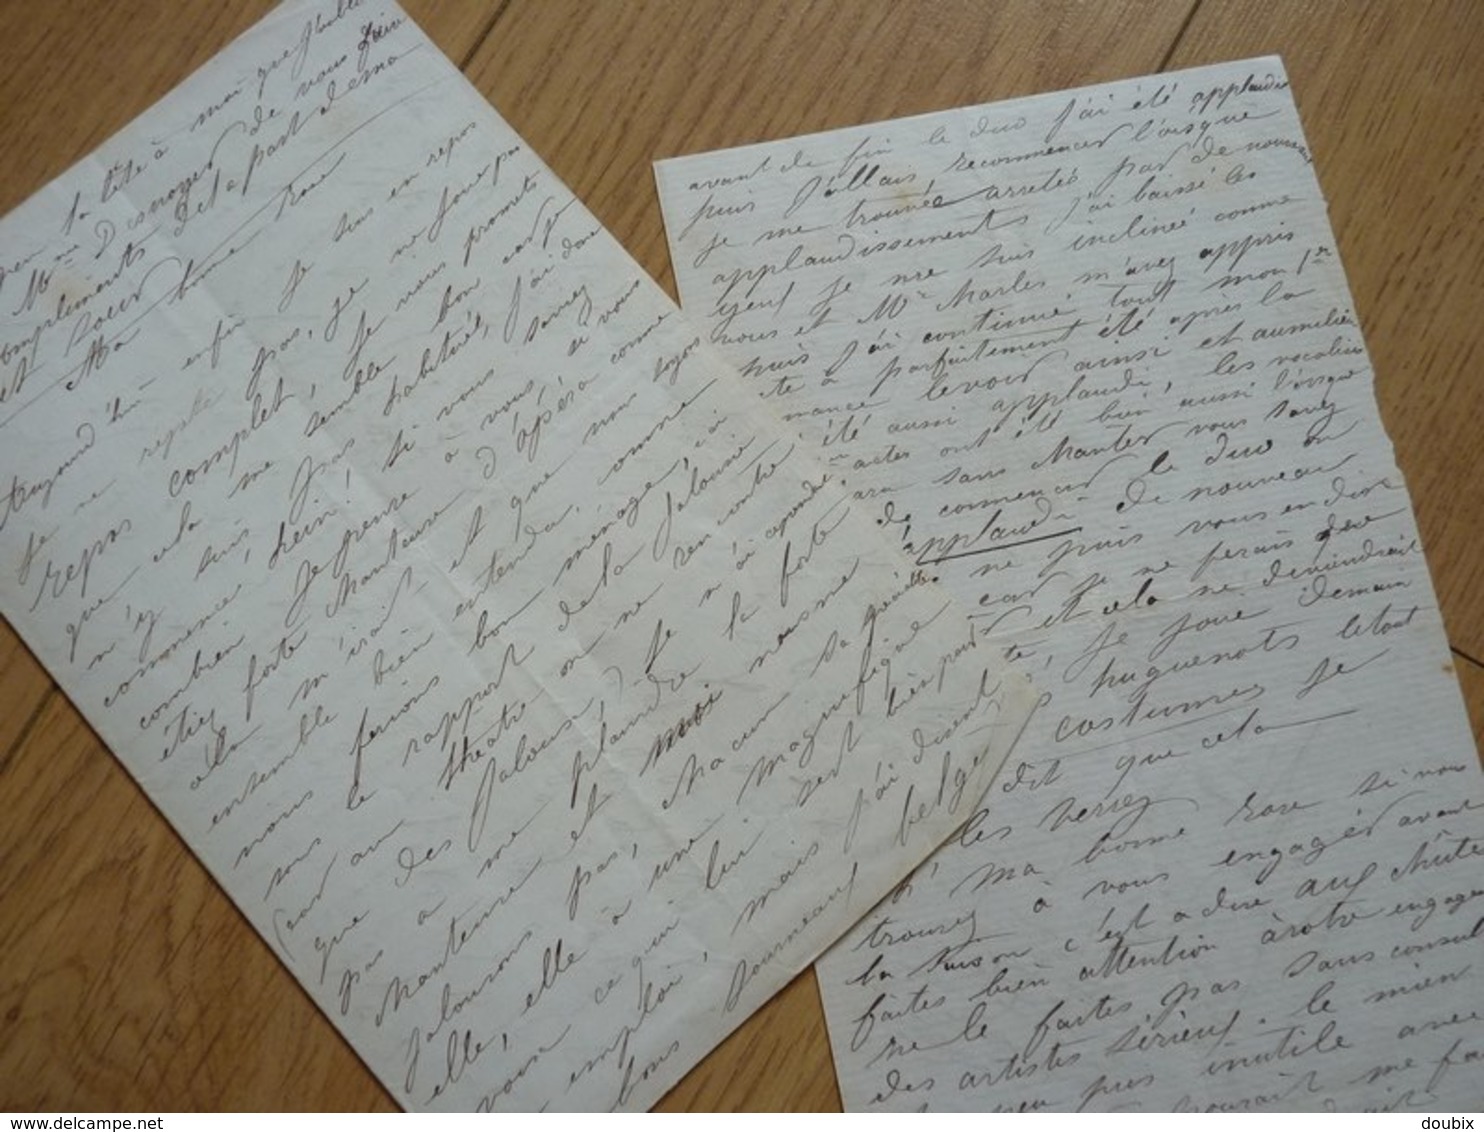 la tête à moi que
Mme Desnoyer de vous faire
compliments de la part de ma
et
Ma bonne Rose
Aujourd'hui enfin je suis en repos
je ne répète pas, je ne joue pas
repos complet, je vous promets
que cela me semble bon car je
n'y suis pas habitué, j'ai donc
commencé, hein! si vous savez
combien je pense à vous si vous
étiez forte chanteuse d'opéra comme
cela m'irait et que nous logions
ensemble bien entendu, comme
nous ferions bon ménage,
sous le rapport de la jalousie
(car au théâtre on ne rencontre
que des jalouses,) je n'ai
pas à me plaindre la forte
chanteuse et moi nous ne
jalousons pas, chacun sa
elle, elle à une magnifique
voix ce qui lui sert bien pour
emploi, mais j'ai dient
bons journeaux belge
avant de finir le duo j'ai été applaudie
puis j'allais recommencer l'orsque
je me trouvée arretée par de nouveau
applaudissements j'ai baissé les
yeux je me suis inclinée comme
vous et Mr Charles m'avez appris
puis j'ai continué tout mon 1er
te a parfaitement été après la
mance levoir ainsi et aumilieu
été aussi applaudi, les vocalises
actes ont été bien aussi l'orsque
sans chanter vous savez
de commencer le duo on
applaudi de nouveau
ne puis vous en dire
car je ne ferais que
et cela ne deviendrait
te, je joue demain
huguenots le tout
costumes je
dit que cela
les verrez
Ma bonne Rose si vous
trouvez à vous engagér avant
la saison c'est a dire aux chûtes
faites bien attention àvotre engage
ne le faites pas sans consult
des artistes sérieux. le mien
peu pres inutile avec
pourait me fa
doubix